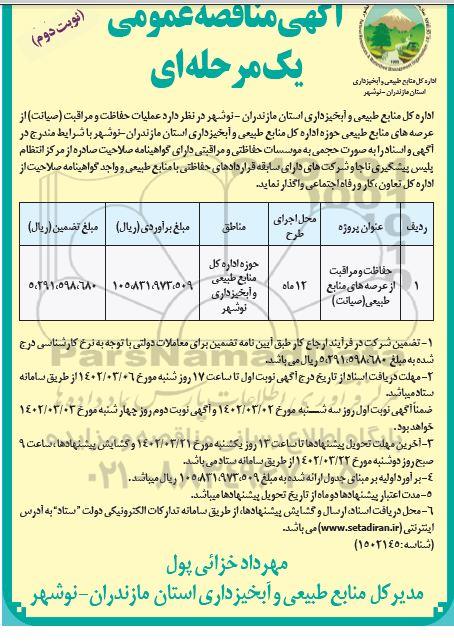 آگهی مناقصه عمومی
(نوبت دوم)
یک مرحله‌ای
اداره کل منابع طبیعی و آبخیزداری
استان مازندران - نوشهر
اداره کل منابع طبیعی و آبخیزداری استان مازندران - نوشهر در نظر دارد عملیات حفاظت و مراقبت (صیانت) از
عرصه های منابع طبیعی حوزه اداره کل منابع طبیعی و آبخیزداری استان مازندران-نوشهر با شرایط مندرج در
آگهی و اسناد را به صورت حجمی به موسسات حفاظتی و مراقبتی دارای گواهینامه صلاحیت صادره از مرکز انتظام
پلیس پیشگیری ناجا و شرکت های دارای سابقه قراردادهای حفاظتی با منابع طبیعی و واجد گواهینامه صلاحیت از
اداره کل تعاون، کار و رفاه اجتماعی واگذار نماید.
ردیف عنوان پروژه محل اجرای طرح مناطق مبلغ برآوردی (ریال) مبلغ تضمین (ریال)
۱ حفاظت و مراقبت از عرصه های منابع طبیعی (صیانت) ۱۲ ماه حوزه اداره کل منابع طبیعی و آبخیزداری نوشهر ۱۰۵،۸۳۱،۹۷۳،۵۰۹ ۵،۲۹۱،۵۹۸،۶۸۰
۱- تضمین شرکت در فرآیند ارجاع کار طبق آیین نامه تضمین برای معاملات دولتی با توجه به نرخ کارشناسی درج
شده به مبلغ ۵،۲۹۱،۵۹۸،۶۸۰ ریال می باشد.
۲- مهلت دریافت اسناد از تاریخ درج آگهی نوبت اول تا ساعت ۱۷ روز شنبه مورخ ۱۴۰۲/۰۳/۰۶ از طریق سامانه
ستاد میباشد.
ضمناً آگهی نوبت اول روز سه شنبه مورخ ۱۴۰۲/۰۳/۰۲ و آگهی نوبت دوم روز چهار شنبه مورخ ۱۴۰۲/۰۳/۰۳
خواهد بود.
۳- آخرین مهلت تحویل پیشنهادها تا ساعت ۱۳ روز یکشنبه مورخ ۱۴۰۲/۰۳/۲۱ و گشایش پیشنهادها، ساعت ۹
صبح روز دوشنبه مورخ ۱۴۰۲/۰۳/۲۲ از طریق سامانه ستاد می باشد.
۴- برآورد اولیه بر مبنای جدول ارائه شده به مبلغ ۱۰۵،۸۳۱،۹۷۳،۵۰۹ ریال میباشد.
۵- مدت اعتبار پیشنهادها دو ماه از تاریخ تحویل پیشنهادها میباشد.
۶- محل دریافت اسناد، ارسال و گشایش پیشنهادها، از طریق سامانه تدارکات الکترونیکی دولت "ستاد" به آدرس
اینترنتی (www.setadiran.ir) می باشد.
(شناسه: ۱۵۰۲۱۴۵)
مهرداد خزائی پول
مدیر کل منابع طبیعی و آبخیزداری استان مازندران-نوشهر